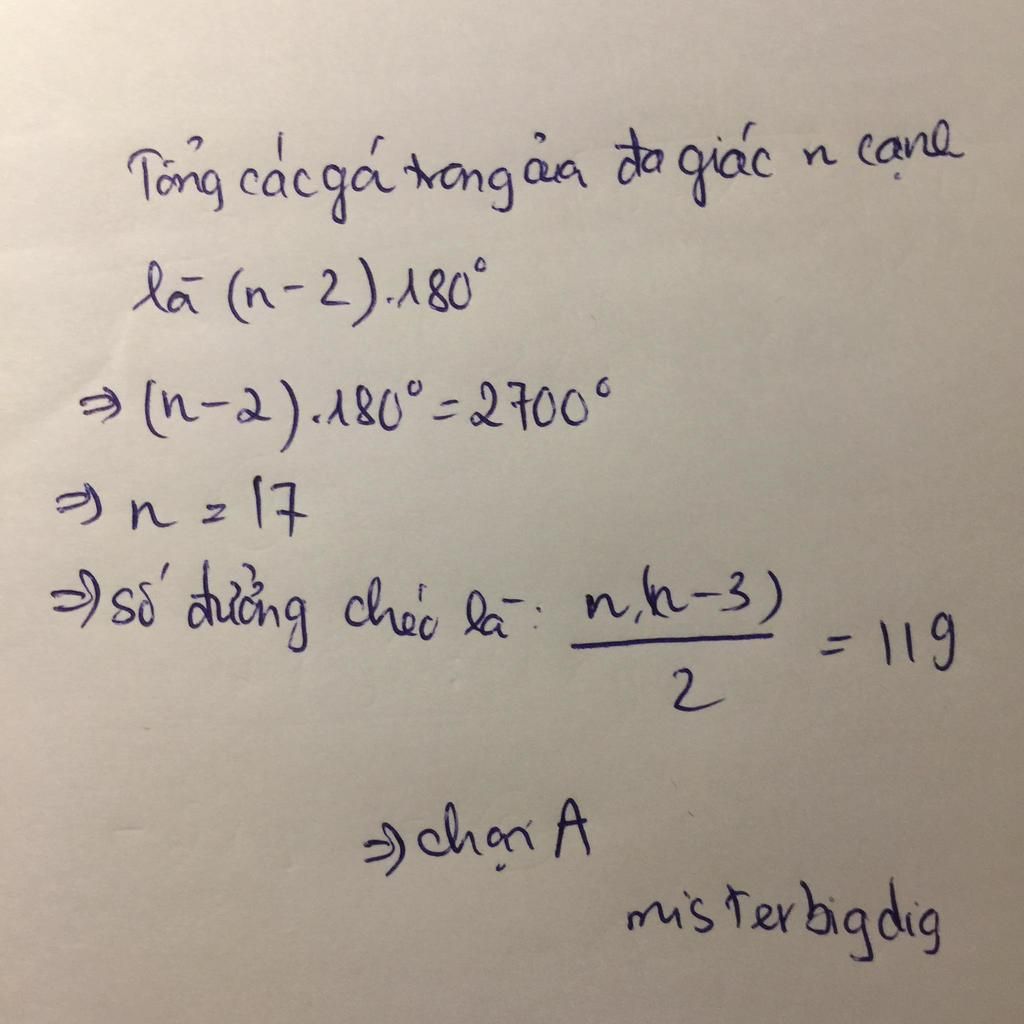 Tổng các gá trong của đa giác n cạnh
là (n-2).180°
⇒ (n-2).180° = 2700°
⇒ n = 17
⇒ số đường chéo là: n.(n-3)/2 = 119
⇒ chọn A
misterbigdig